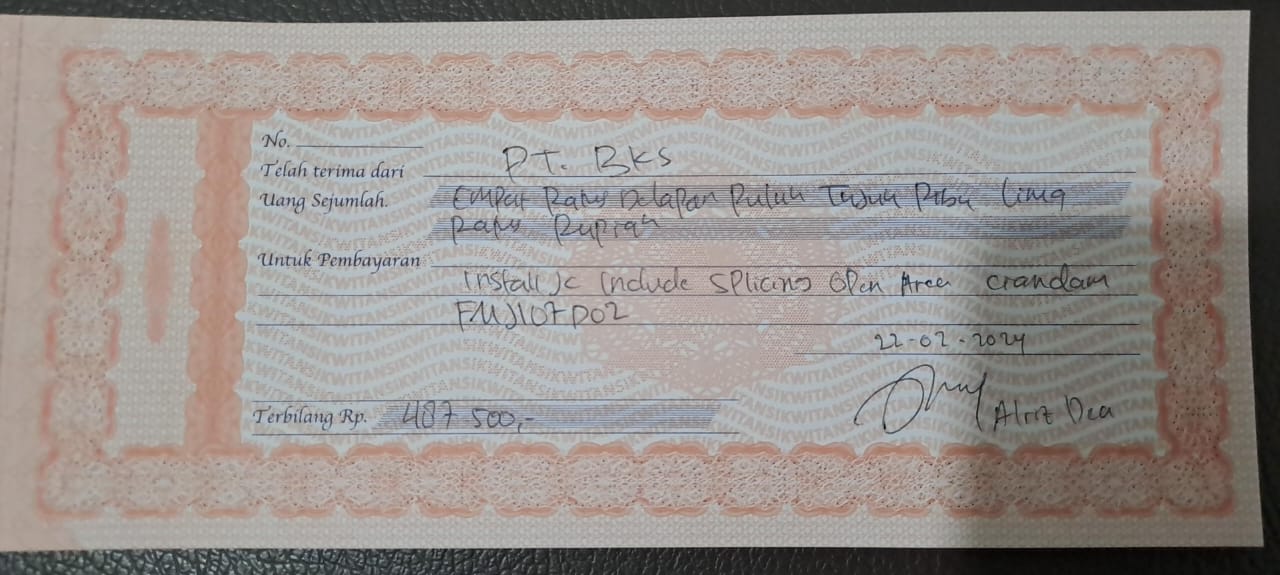 No.
Telah terima dari PT. Bks
Uang Sejumlah. Empat Ratus Delapan Puluh Tujuh Ribu Lima
Ratus Rupiah
Untuk Pembayaran
Install Jc Include Splicing Open Area Crandam
22-02-2024
Terbilang Rp. 487 500,-